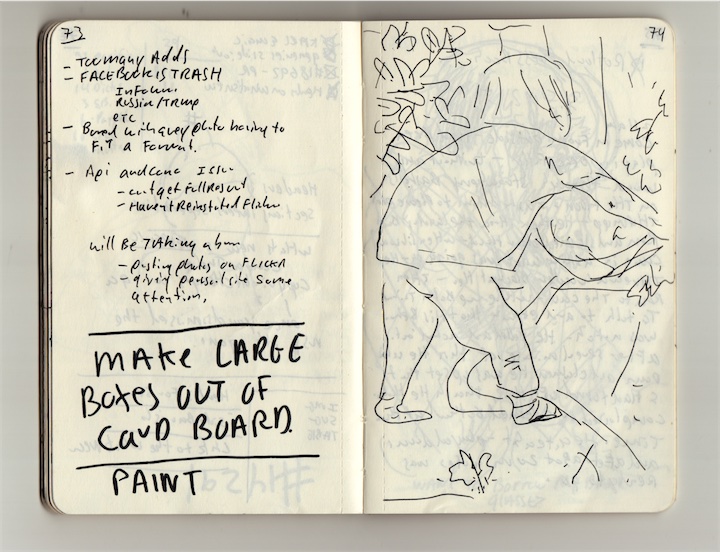 73
- Too many Adds
- FACEBOOK IS TRASH
Russia/Trump
etc
- Bored with every photo having to
Fit a Format.
- Api and
- cant get Full Resort
- Haven't Reinstated Flickr
will Be Taking a
- posting photos on FLICKR
- giving personal site some
attention,
make LARGE
Boxes OUT OF
CarD BOARD.
PAINT
74